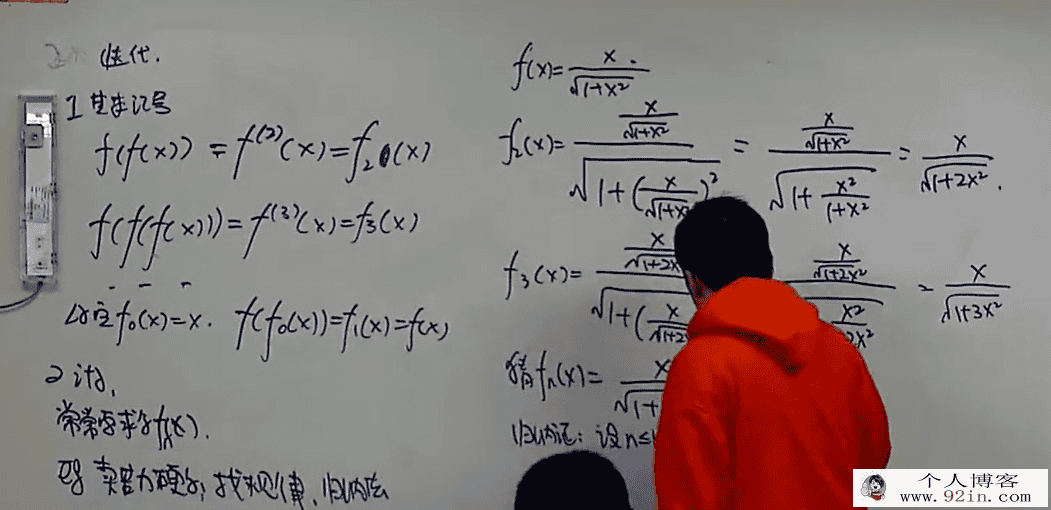 迭代.
1 基本记号
f(f(x)) = f^{(2)}(x) = f_2(x)
f(f(f(x))) = f^{(3)}(x) = f_3(x)
约定 f_0(x) = x. f(f_0(x)) = f_1(x) = f(x)
2 计算.
常常要求 f_n(x).
找规律、归纳法
f(x) = \frac{x}{\sqrt{1+x^2}}.
f_2(x) = \frac{\frac{x}{\sqrt{1+x^2}}}{\sqrt{1+(\frac{x}{\sqrt{1+x^2}})^2}} = \frac{\frac{x}{\sqrt{1+x^2}}}{\sqrt{1+\frac{x^2}{1+x^2}}} = \frac{x}{\sqrt{1+2x^2}}.
f_3(x) = \frac{\frac{x}{\sqrt{1+2x}}}{\sqrt{1+(\frac{x}{\sqrt{1+2x}}}} \frac{\frac{x}{\sqrt{1+2x^2}}}{\frac{x^2}{2x^2}} = \frac{x}{\sqrt{1+3x^2}}
猜 f_n(x) = \frac{x}{\sqrt{1+}}
归纳证: 设 n ≤
个人博客
www.92in.com